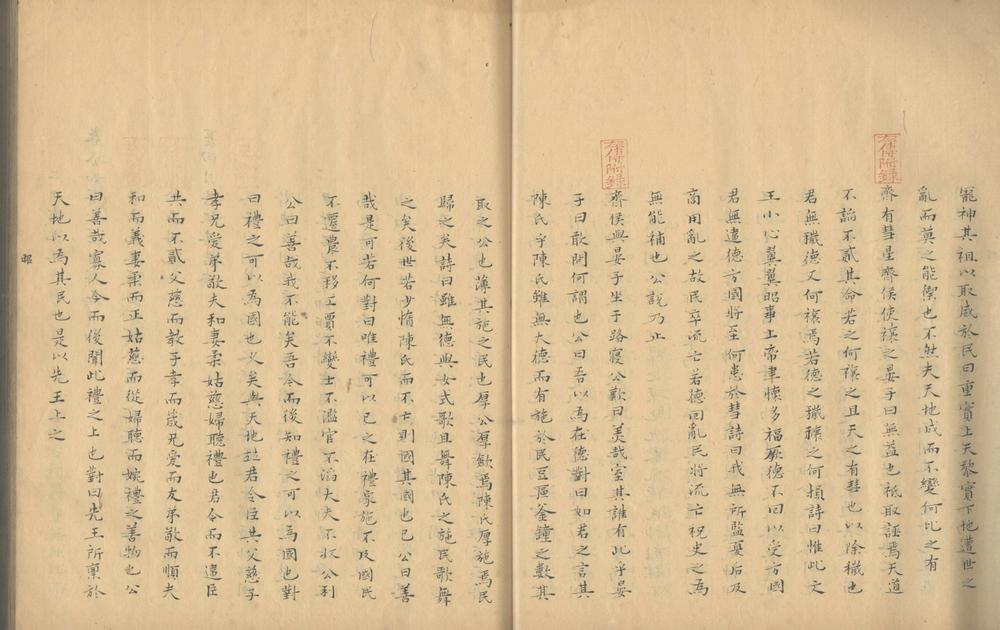 寵神其祖以取威於民曰重寔上天黎寔下地遭世之
亂而莫之能禦也不然夫天地成而不變何比之有
左傳附錄
齊有彗星齊侯使禳之晏子曰無益也祗取誣焉天道
不謟不貳其命若之何禳之且天之有彗也以除穢也
君無穢德又何禳焉若德之穢禳之何損詩曰惟此文
王小心翼翼昭事上帝聿懷多福厥德不回以受方國
君無違德方國將至何患於彗詩曰我無所監夏后及
商用亂之故民卒流亡若德回亂民將流亡祝史之為
無能補也公說乃止
左傳附錄
齊侯與晏子坐于路寢公歎曰美哉室其誰有此乎晏
子曰敢問何謂也公曰吾以為在德對曰如君之言其
陳氏乎陳氏雖無大德而有施於民豆區釜鐘之數其
取之公也薄其施之民也厚公厚歛焉陳氏厚施焉民
歸之矣詩曰雖無德與女式歌且舞陳氏之施民歌舞
之矣後世若少惰陳氏而不亡則國其國也已公曰善
哉是可若何對曰唯禮可以已之在禮家施不及國民
不遷農不移工賈不變士不濫官不滔大夫不收公利
公曰善哉我不能矣吾今而後知禮之可以為國也對
曰禮之可以為國也乆矣與天地並君令臣共父慈子
孝兄愛弟敬夫和妻柔姑慈婦聽禮也君令而不違臣
共而不貳父慈而教子孝而箴兄愛而友弟敬而順夫
和而義妻柔而正姑慈而從婦聽而婉禮之善物也公
曰善哉寡人今而後聞此禮之上也對曰先王所稟於
天地以為其民也是以先王上之
昭